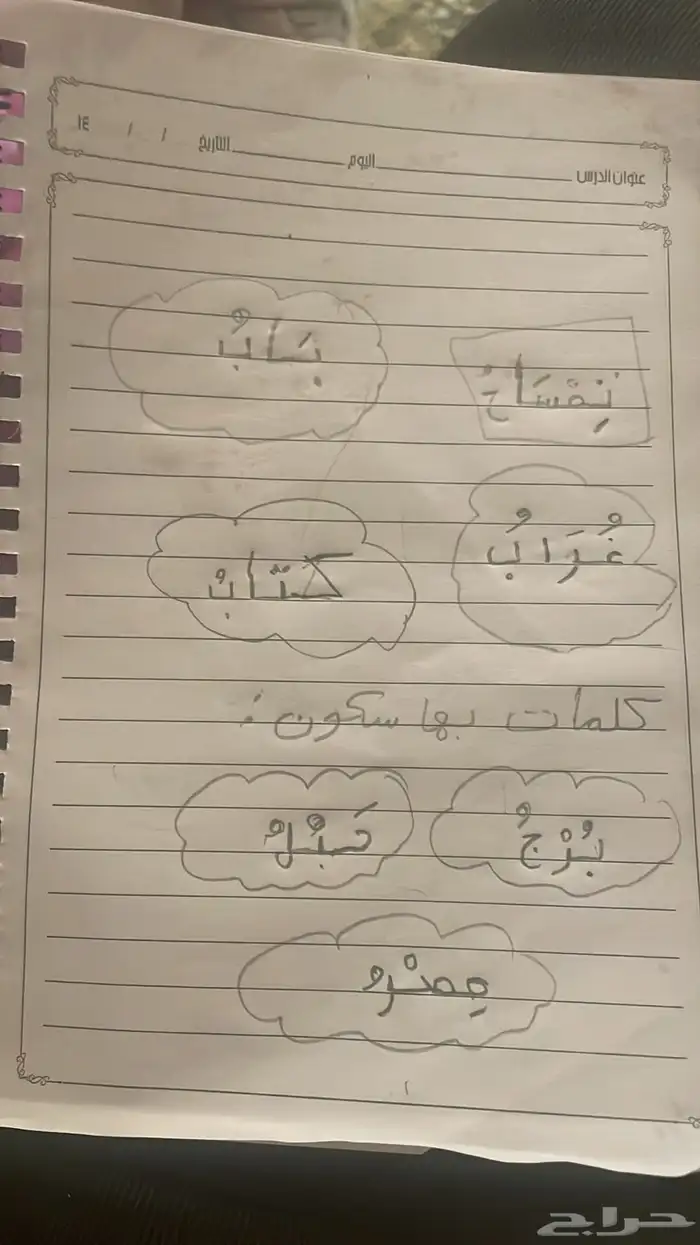 عنوان الدرس اليوم التاريخ / / ١٤
بَابُ
غُرَابُ كتَابُ
كلمات بها سكون :
بُرْجُ حَبْلُ
مِصْرُ
حراج